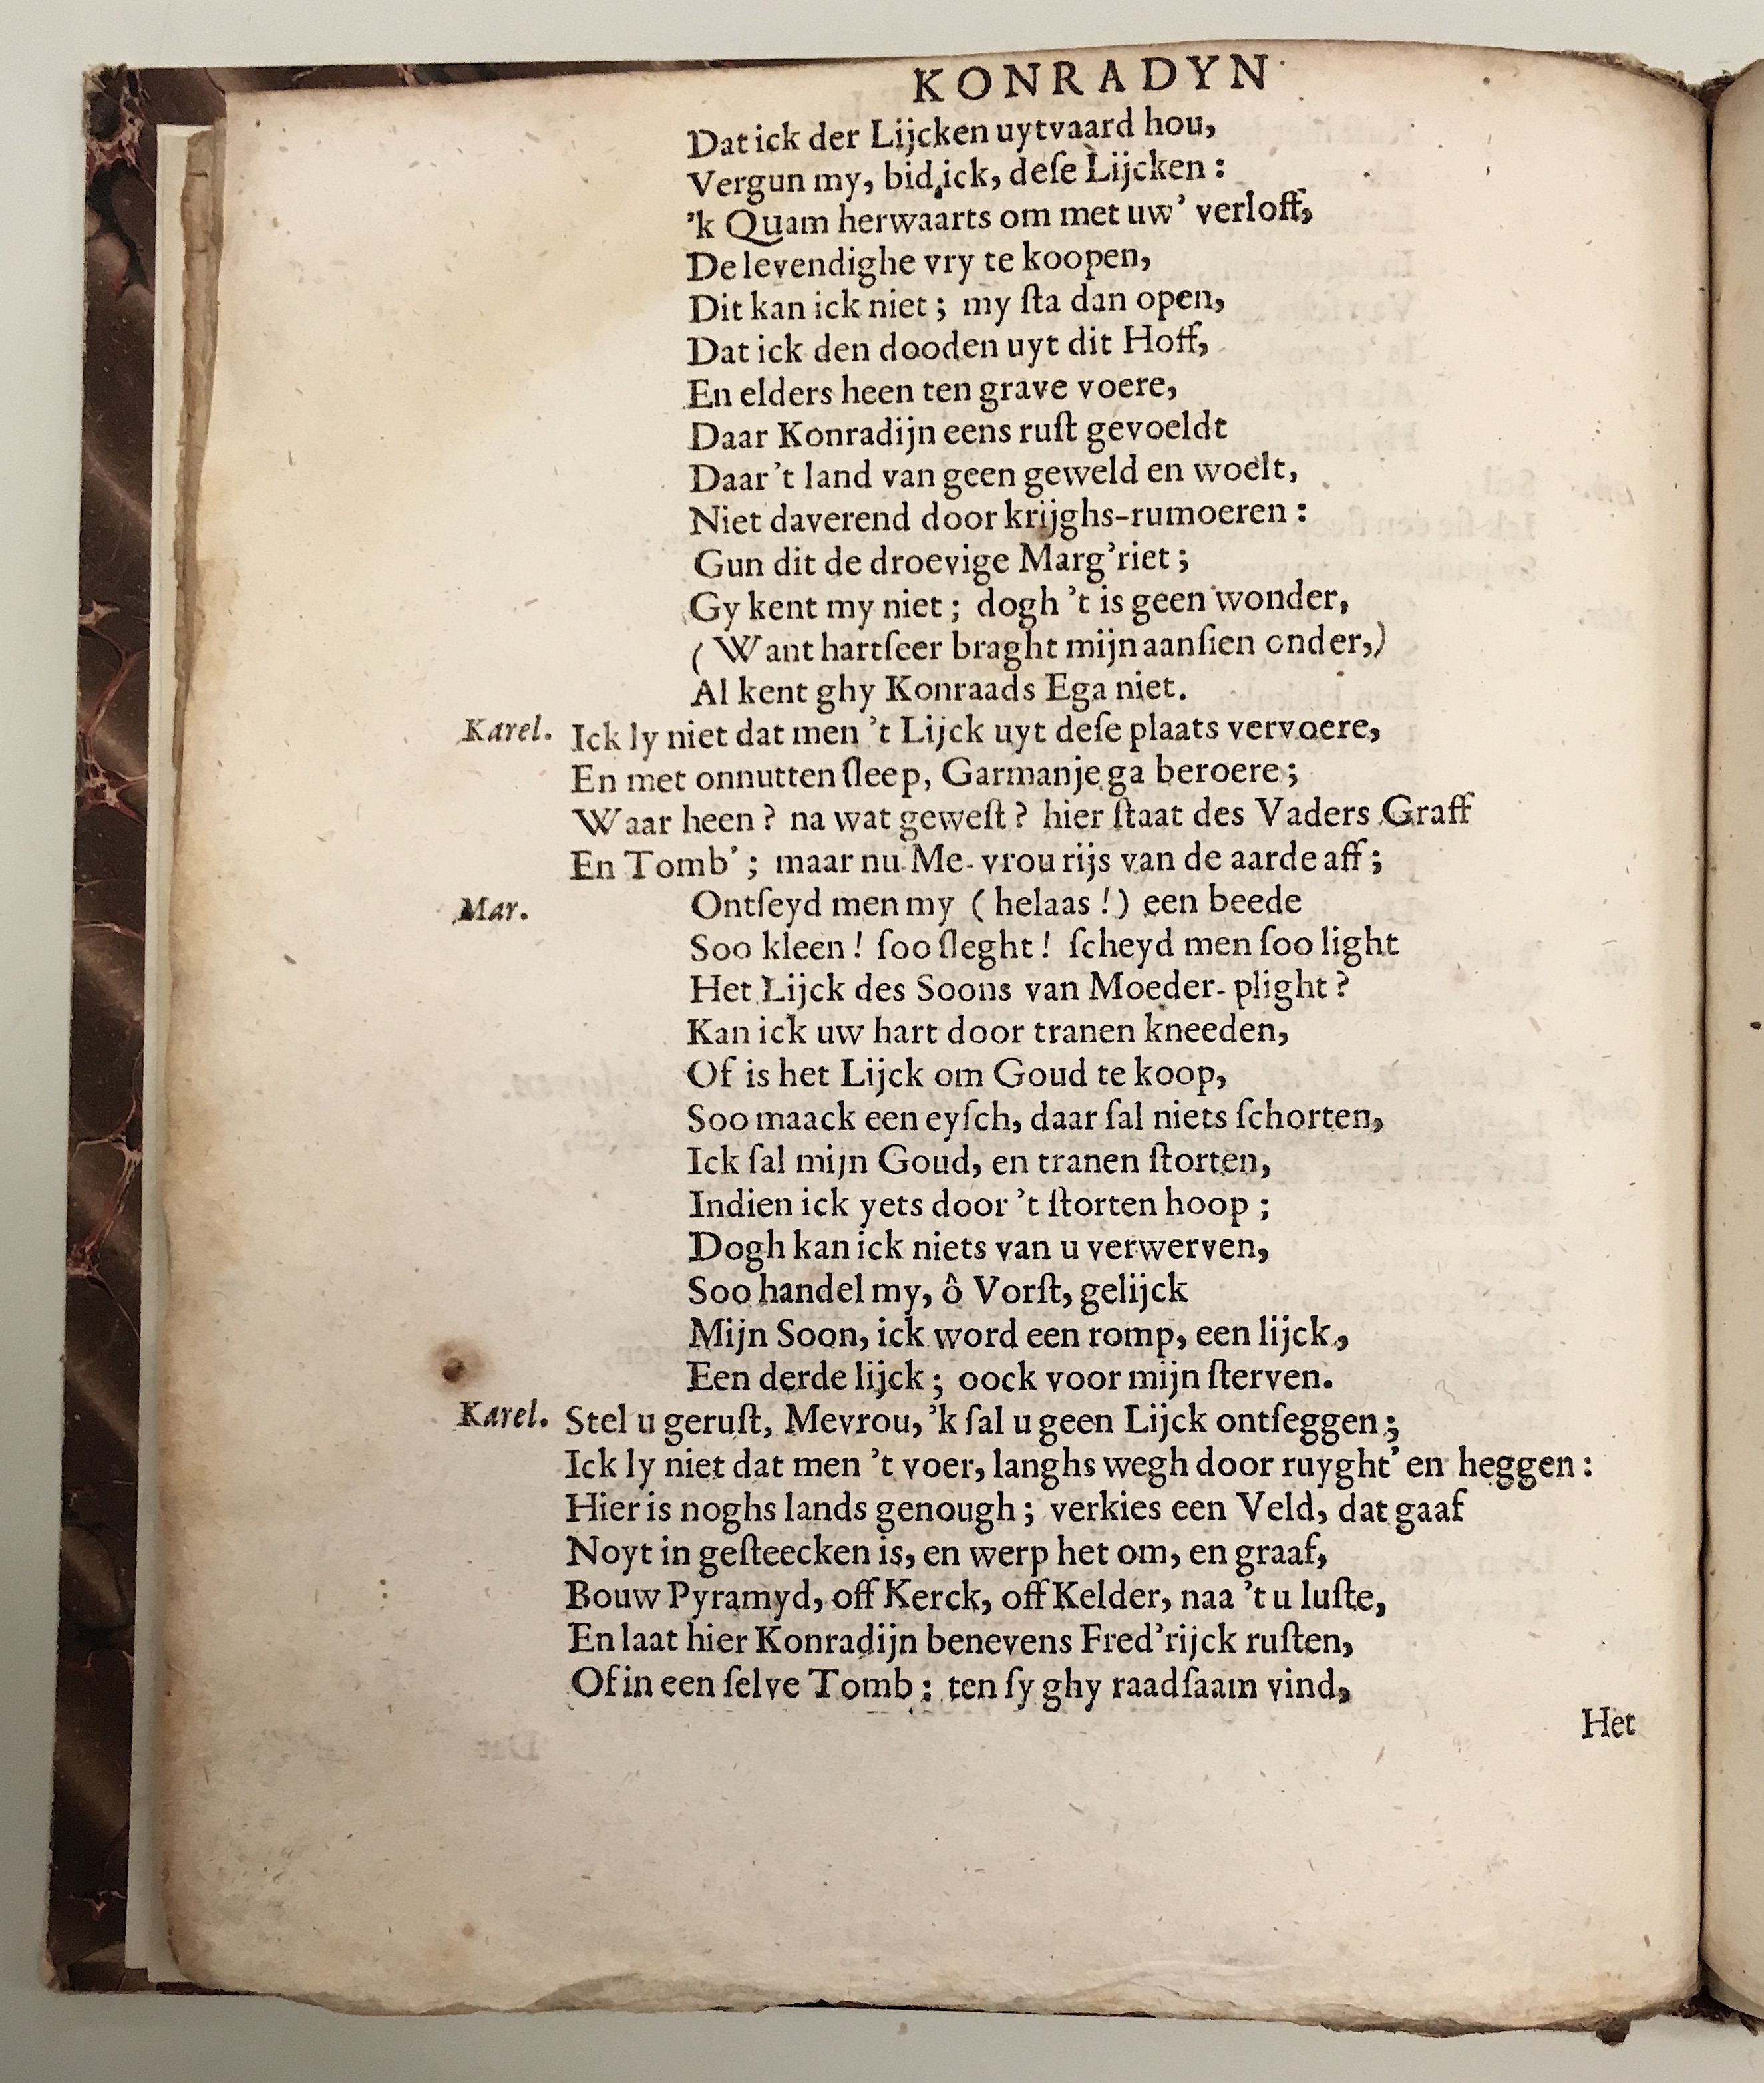 KONRADYN
Dat ick der Lijcken uytvaard hou,
Vergun my, bid ick, deſe Lijcken :
'k Quam herwaarts om met uw' verloff,
De levendighe vry te koopen,
Dit kan ick niet ; my ſta dan open,
Dat ick den dooden uyt dit Hoff,
En elders heen ten grave voere,
Daar Konradijn eens ruſt gevoeldt
Daar 't land van geen geweld en woelt,
Niet daverend door krijghs-rumoeren :
Gun dit de droevige Marg'riet ;
Gy kent my niet ; dogh 't is geen wonder,
( Want hartſeer braght mijn aanſien onder,)
Al kent ghy Konraads Ega niet.
Karel. Ick ly niet dat men 't Lijck uyt deſe plaats vervoere,
En met onnutten ſleep, Garmanje ga beroere ;
Waar heen ? na wat geweſt ? hier ſtaat des Vaders Graff
En Tomb' ; maar nu Me-vrou rijs van de aarde aff ;
Mar. Ontſeyd men my ( helaas ! ) een beede
Soo kleen ! ſoo ſleght ! ſcheyd men ſoo light
Het Lijck des Soons van Moeder-plight ?
Kan ick uw hart door tranen kneeden,
Of is het Lijck om Goud te koop,
Soo maack een eyſch, daar ſal niets ſchorten,
Ick ſal mijn Goud, en tranen ſtorten,
Indien ick yets door 't ſtorten hoop ;
Dogh kan ick niets van u verwerven,
Soo handel my, ô Vorſt, gelijck
Mijn Soon, ick word een romp, een lijck,
Een derde lijck ; oock voor mijn ſterven.
Karel. Stel u geruſt, Mevrou, 'k ſal u geen Lijck ontſeggen ;
Ick ly niet dat men 't voer, langhs wegh door ruyght' en heggen :
Hier is noghs lands genough ; verkies een Veld, dat gaaf
Noyt in geſteecken is, en werp het om, en graaf,
Bouw Pyramyd, off Kerck, off Kelder, naa 't u luſte,
En laat hier Konradijn benevens Fred'rijck ruſten,
Of in een ſelve Tomb : ten ſy ghy raadſaam vind,
Het